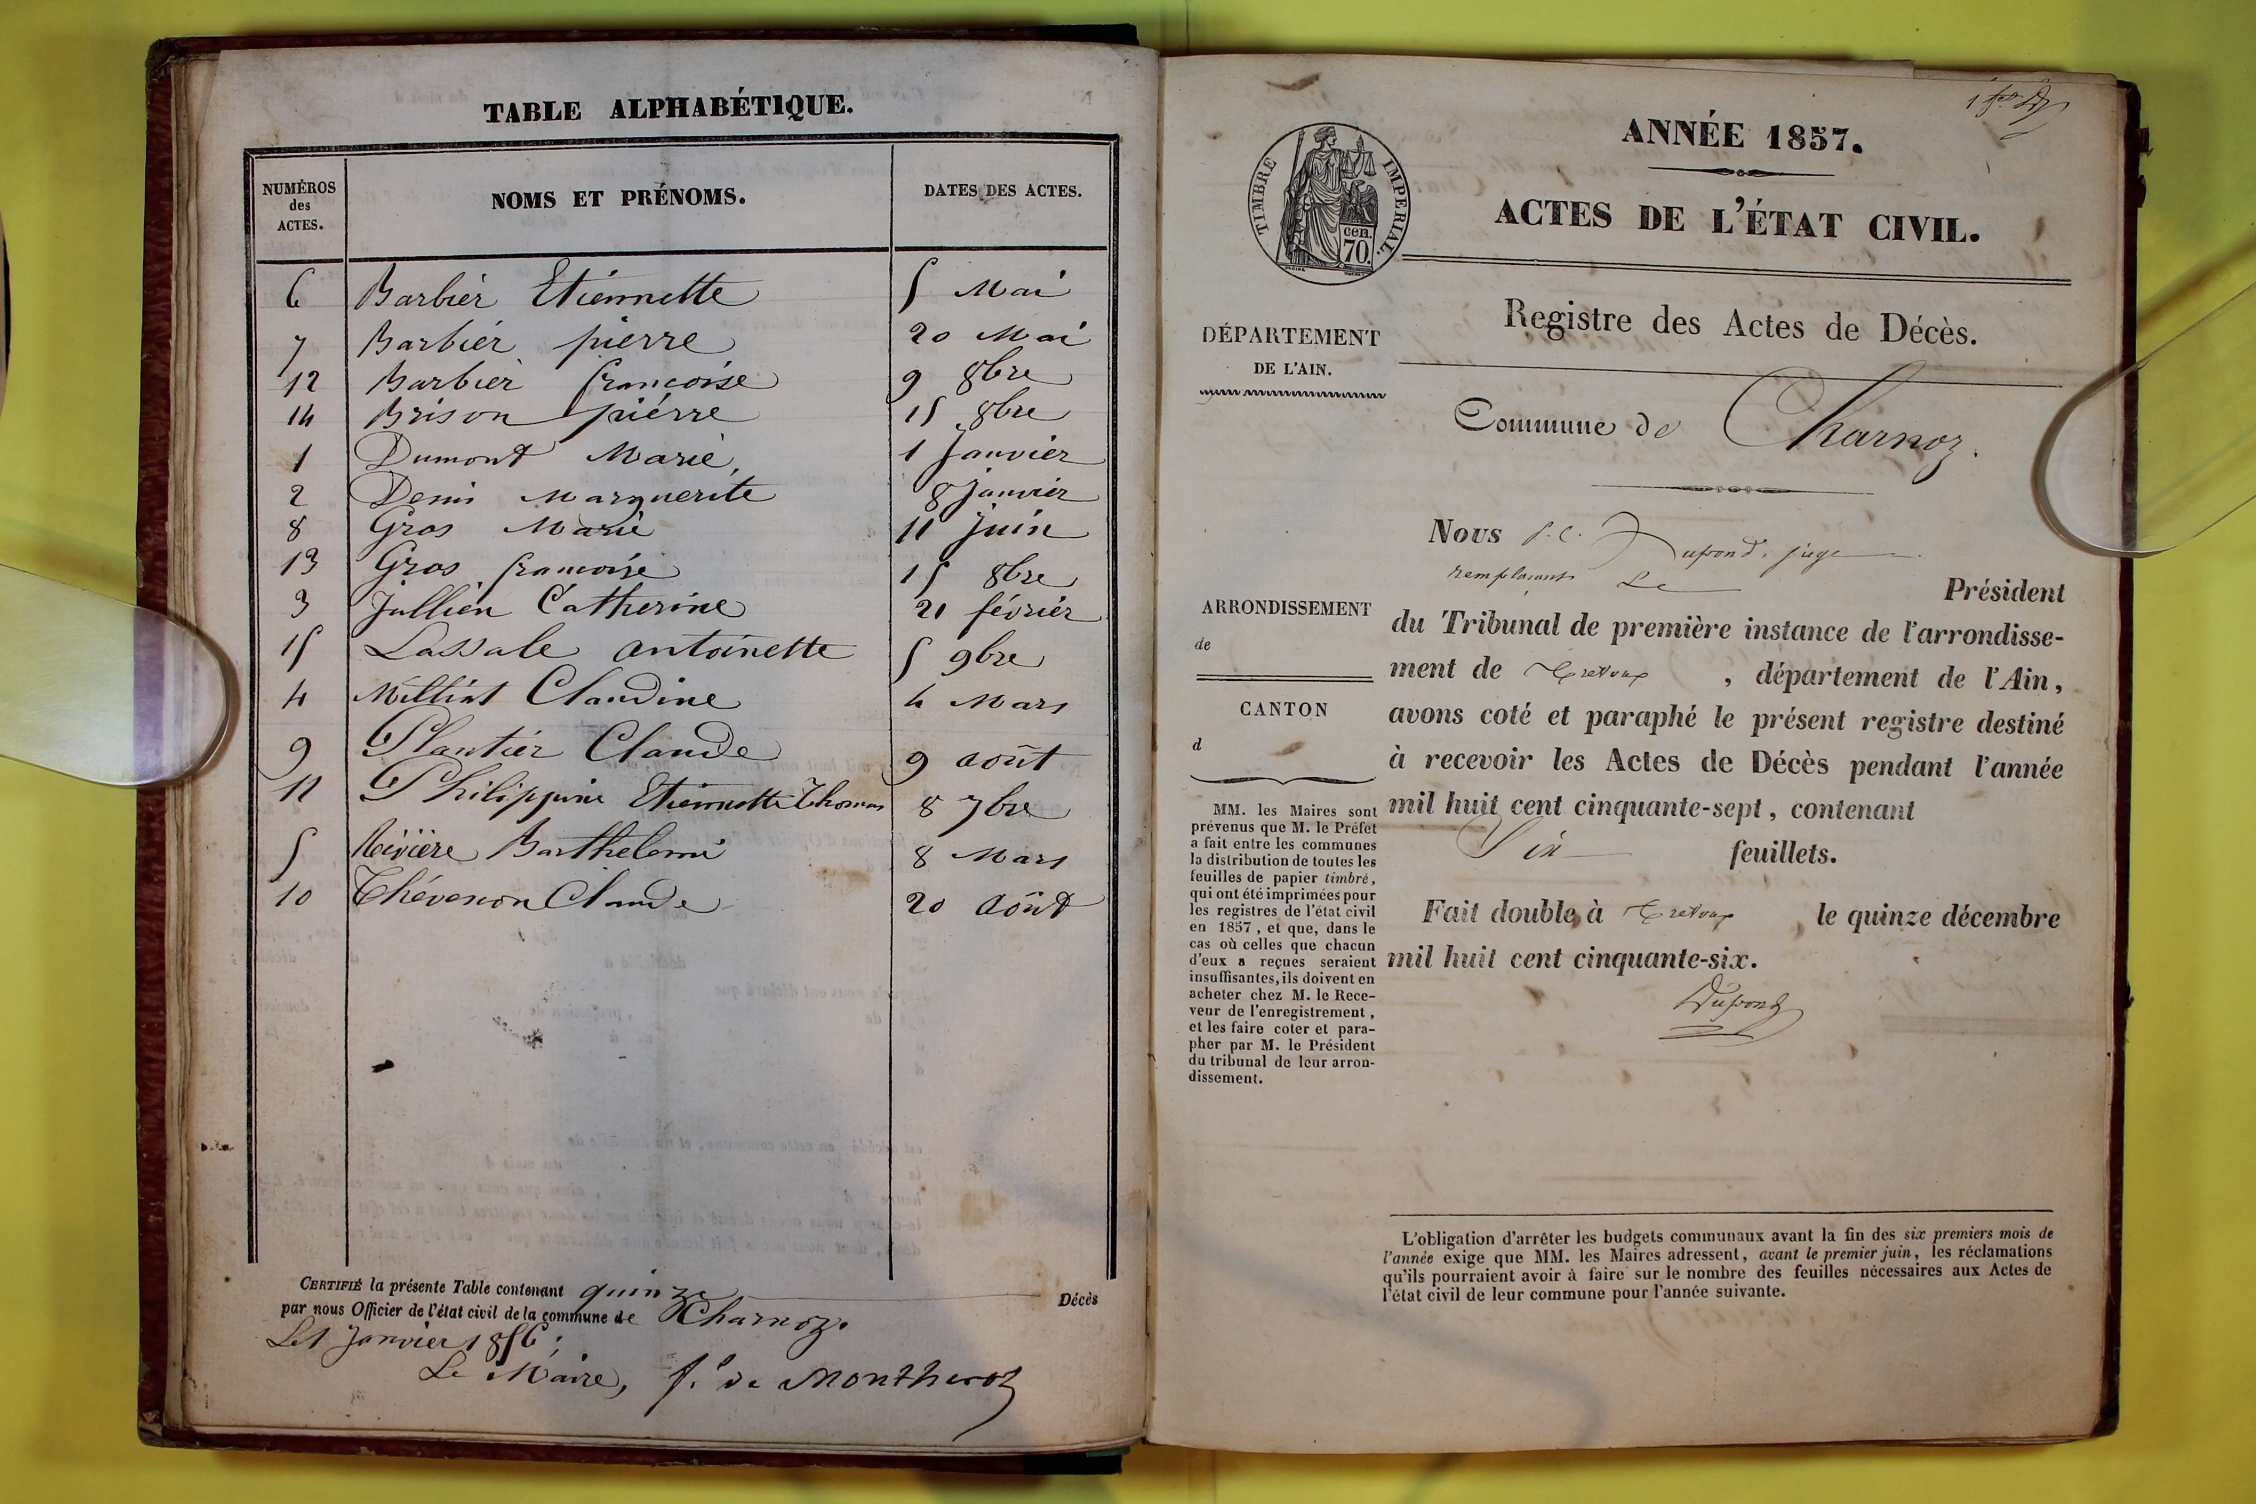 TABLE ALPHABÉTIQUE.
NUMÉROS des ACTES. NOMS ET PRÉNOMS. DATES DES ACTES.
6 Barbier Etiennette 5 Mai
7 Barbier pierre 20 Mai
12 Barbier francoise 9 8bre
14 Brison pierre 15 8bre
1 Dumont Marie 1 Janvier
2 Denis Marguerite 8 Janvier
8 Gros Marie 11 Juin
13 Gros francoise 15 8bre
3 Jullien Catherine 21 février
15 Lassale antoinette 5 9bre
4 Milliat Claudine 4 Mars
9 Plantier Claude 9 août
11 Philippine Etiennette Thomas 8 7bre
5 Rivière Barthelemi 8 Mars
10 Thévenon Claude 20 Août
CERTIFIÉ la présente Table contenant quinze Décès
par nous Officier de l'état civil de la commune de Charnoz.
Le 1 Janvier 1856.
Le Maire, f. de Montherot
ANNÉE 1857.
ACTES DE L'ÉTAT CIVIL.
TIMBRE IMPERIAL.
cen.
70.
DÉPARTEMENT
DE L'AIN.
Registre des Actes de Décès.
Commune de Charnoz.
ARRONDISSEMENT
de
CANTON
d
MM. les Maires sont
prévenus que M. le Préfet
a fait entre les communes
la distribution de toutes les
feuilles de papier timbré,
qui ont été imprimées pour
les registres de l'état civil
en 1857, et que, dans le
cas où celles que chacun
d'eux a reçues seraient
insuffisantes, ils doivent en
acheter chez M. le Rece-
veur de l'enregistrement,
et les faire coter et para-
pher par M. le Président
du tribunal de leur arron-
dissement.
Nous Dupond, juge
remplacant Le Président
du Tribunal de première instance de l'arrondisse-
ment de Trevoux, département de l'Ain,
avons coté et paraphé le présent registre destiné
à recevoir les Actes de Décès pendant l'année
mil huit cent cinquante-sept, contenant
Six feuillets.
Fait double, à Trevoux, le quinze décembre
mil huit cent cinquante-six.
Dupond
L'obligation d'arrêter les budgets communaux avant la fin des six premiers mois de
l'année exige que MM. les Maires adressent, avant le premier juin, les réclamations
qu'ils pourraient avoir à faire sur le nombre des feuilles nécessaires aux Actes de
l'état civil de leur commune pour l'année suivante.